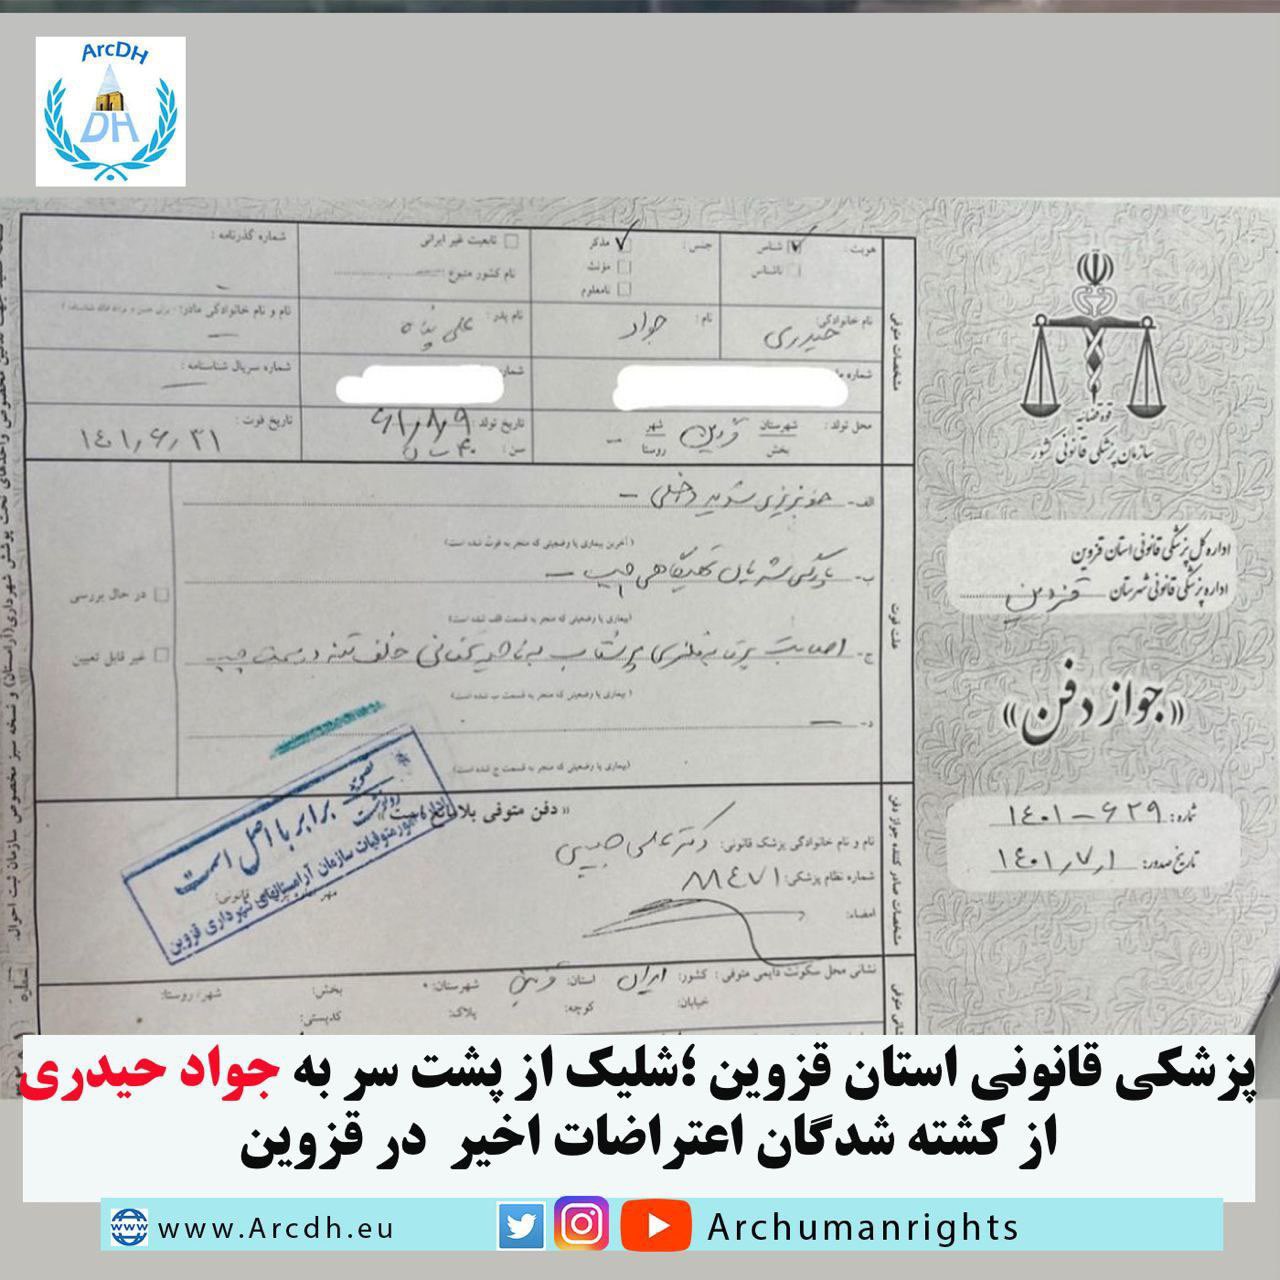 ArcDH
DH
قوه قضاییه
سازمان پزشکی قانونی کشور
اداره کل پزشکی قانونی استان قزوین
اداره پزشکی قانونی شهرستان قزوین
«جواز دفن»
شماره: ۱۴۰۱-۶۲۹
تاریخ صدور: ۱۴۰۱/۷/۱
مشخصات متوفی
هویت: شناس
ناشناس
جنس: مذکر
مؤنث
نامعلوم
تابعیت غیر ایرانی
نام کشور متبوع
شماره گذرنامه:
نام خانوادگی: حیدری
نام: جواد
نام پدر: علی پناه
نام و نام خانوادگی مادر:
شماره
شماره سریال شناسنامه:
محل تولد: شهرستان قزوین شهر
بخش روستا
تاریخ تولد ۶۱/۸/۹
سن: ۴۰
تاریخ فوت: ۱۴۰۱/۶/۳۱
علت فوت
الف- خونریزی شدید داخلی
(آخرین بیماری یا وضعیتی که منجر به فوت شده است)
ب- پارگی شریان تهیگاهی چپ
(بیماری یا وضعیتی که منجر به قسمت الف شده است)
ج- اصابت پرتابه فلزی پرشتاب به ناحیه تحتانی خلف تنه در سمت چپ
(بیماری یا وضعیتی که منجر به قسمت ب شده است)
د-
(بیماری یا وضعیتی که منجر به قسمت ج شده است)
در حال بررسی
غیر قابل تعیین
مشخصات صادر کننده جواز دفن
« دفن متوفی بلامانع است»
نام و نام خانوادگی پزشک قانونی: دکتر علی حبیبی
شماره نظام پزشکی: ۸۸۴۷۱
امضاء:
برابر با اصل است
اداره امور متوفیات سازمان آرامستانهای شهرداری قزوین
نشانی محل سکونت دایمی متوفی: کشور: ایران استان: قزوین شهرستان: بخش: شهر/روستا:
خیابان: کوچه: پلاک: کدپستی:
پزشکی قانونی استان قزوین ؛شلیک از پشت سر به جواد حیدری
از کشته شدگان اعتراضات اخیر در قزوین
www.Arcdh.eu
Archumanrights